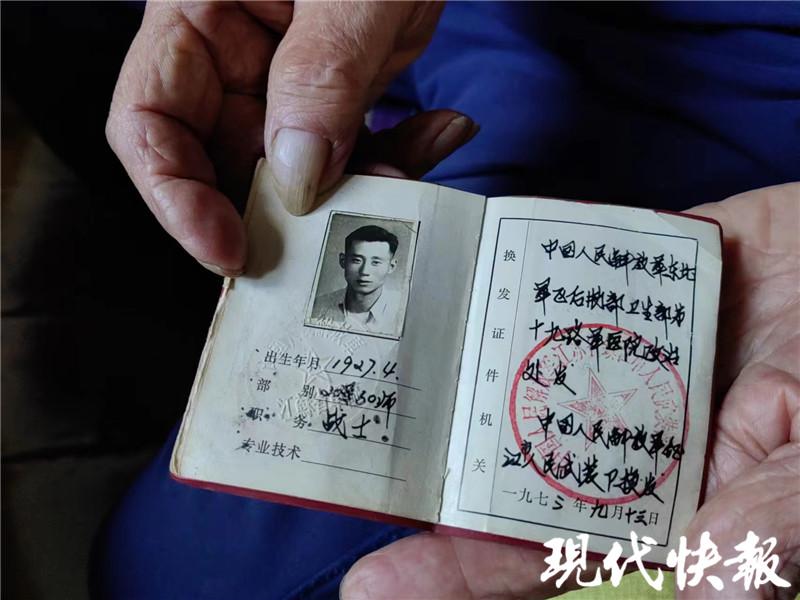 出生年月 1927.4.
部别 50师
职务 战士
专业技术
换发证件机关
中国人民解放军东北
军区后勤部卫生部第
十九陆军医院政治
处发
中国人民解放军
江 人民武装 换发
一九七三年九月十三日
現代快報